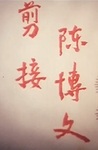 剪接
陈博文